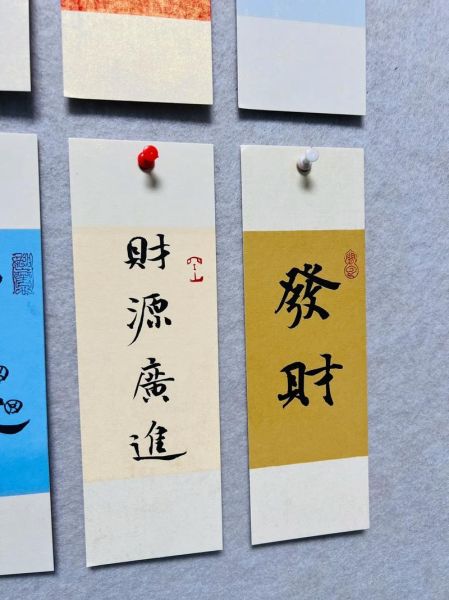 財源廣進
發財